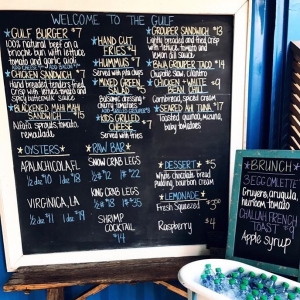 WELCOME TO THE GULF
GULF BURGER $7
100% natural beef on a
brioche bun with lettuce
tomato and garlic aioli
CHICKEN SANDWICH $7
Hand breaded tenders fried
crisp with lettuce tomato and
spicy buttermilk sauce
BLACKENED MAHI MAHI
SANDWICH $15
Alfalfa sprouts, tomato,
remoulade
HAND CUT
FRIES $4
HUMMUS $7
Served with pita chips
MIXED GREEN
SALAD $5
Balsamic dressing
cherry tomatoes
KIDS GRILLED
CHEESE $7
Served with fries
GROUPER SANDWICH $13
Lightly breaded and fried crisp
with lettuce tomato and
lemon dill sauce
BAJA GROUPER TACO $4
Chipotle slaw, cilantro
CHICKEN + WHITE
BEAN CHILE $7
Cornbread, spiced cream
SEARED AHI TUNA $7
Toasted quinoa, mizuna,
baby tomatoes
OYSTERS
APALACHICOLA, FL
1/2 dz $10 1 dz $18
VIRGINICA, LA
1/2 dz $11 1 dz $19
RAW BAR
SNOW CRAB LEGS
1/2 LB $12 1 LB $22
KING CRAB LEGS
1/2 LB $18 1 LB $35
SHRIMP
COCKTAIL
$14
DESSERT $5
White chocolate bread
pudding, bourbon cream
LEMONADE
Fresh Squeezed $3.50
Raspberry $4
BRUNCH
3 EGG OMLETTE
Gruyere, arugula,
heirloom tomato
CHALLAH FRENCH
TOAST $9
Apple Syrup